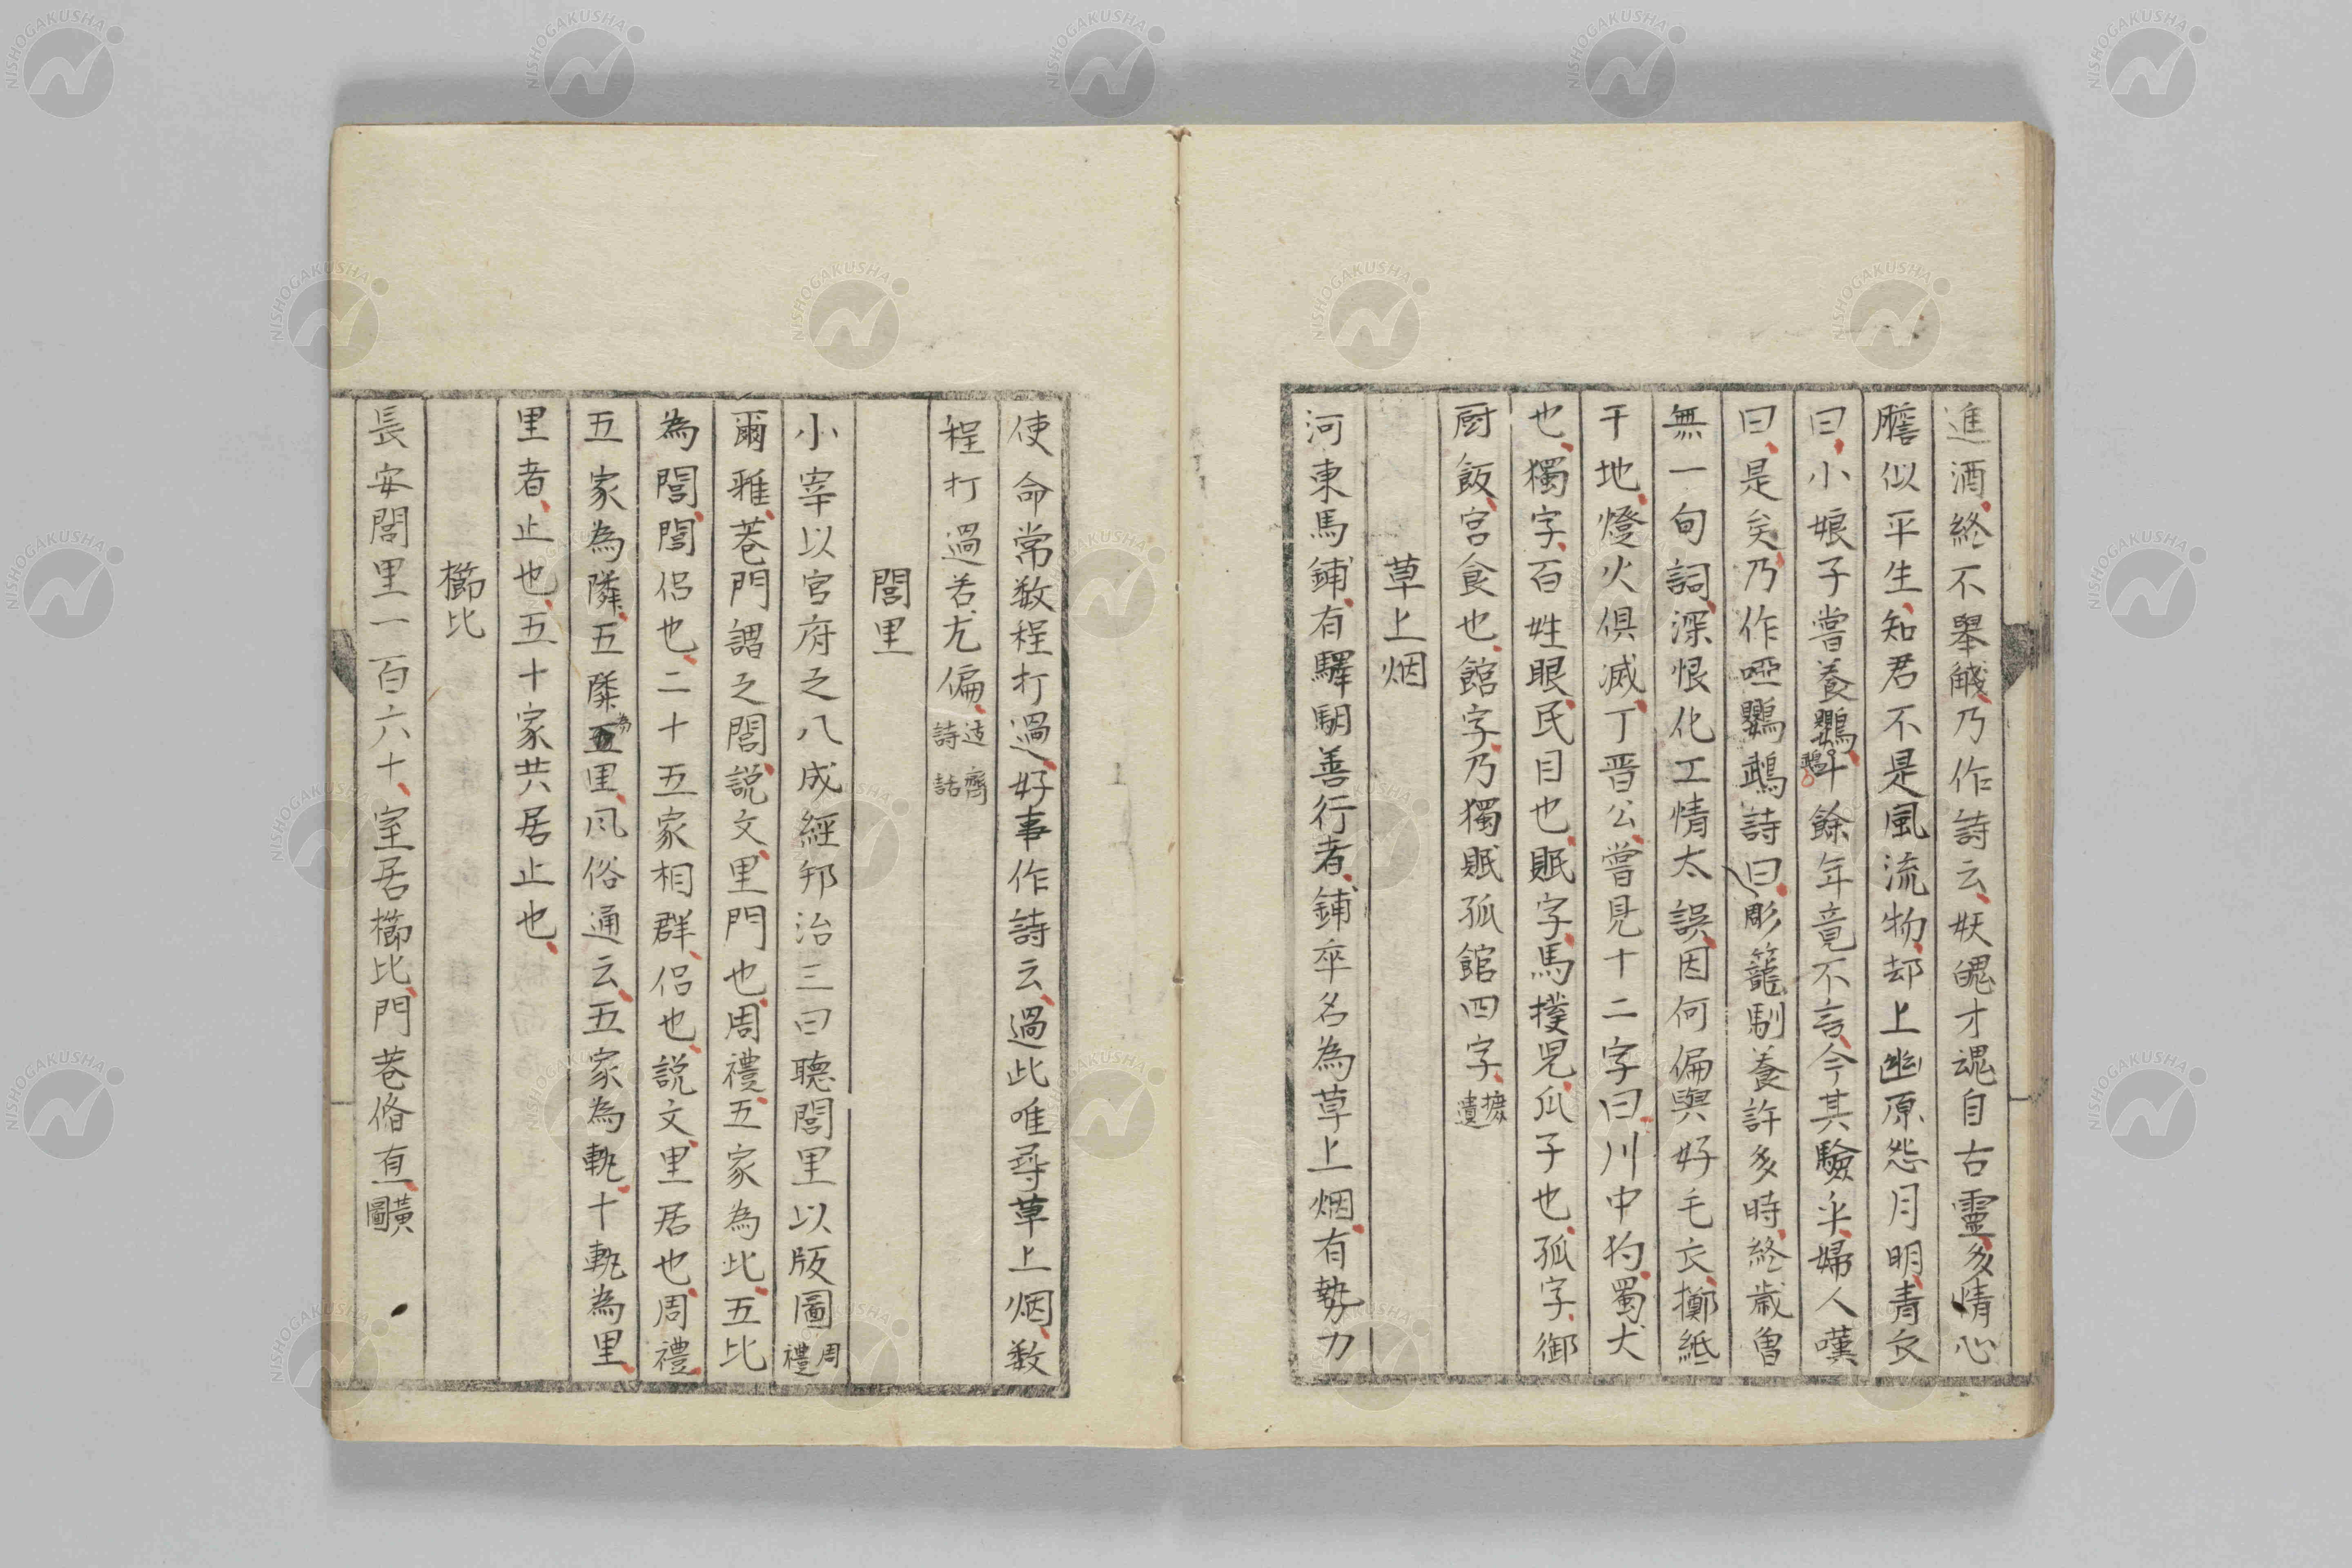 進酒終不擧觴乃作詩云妖魄才魂自古靈多情心
膽似平生知君不是風流物却上幽原怨月明青衣
曰小娘子嘗養鸚鵡十餘年竟不言今其驗乎婦人嘆
曰是矣乃作啞鸚鵡詩曰彫籠馴養許多時終歳曾
無一句詞深恨化工情太誤因何偏與好毛衣擲紙
干地燈火俱滅丁晋公嘗見十二字曰川中狗蜀犬
也獨字百姓眼民目也眠字馬撲児瓜子也孤字御
厨飯宮食也館字乃獨眠孤館四字摭遺
草上烟
河東馬鋪有驛駶善行者鋪卒名為草上烟有勢力
使命常数程打過好事作詩云過此唯尋草上烟数
程打過若尤偏迂齋詩話
閭里
小宰以官府之八成經邦治三曰聽閭里以版圖周禮
爾雅巷門謂之閭説文里門也周禮五家為比五比
為閭閭侶也二十五家相群侶也説文里居也周禮
五家為隣五隣為里風俗通云五家為軌十軌為里
里者止也五十家共居止也
櫛比
長安閭里一百六十室居櫛比門巷脩直黄圖
NISHOGAKUSHA